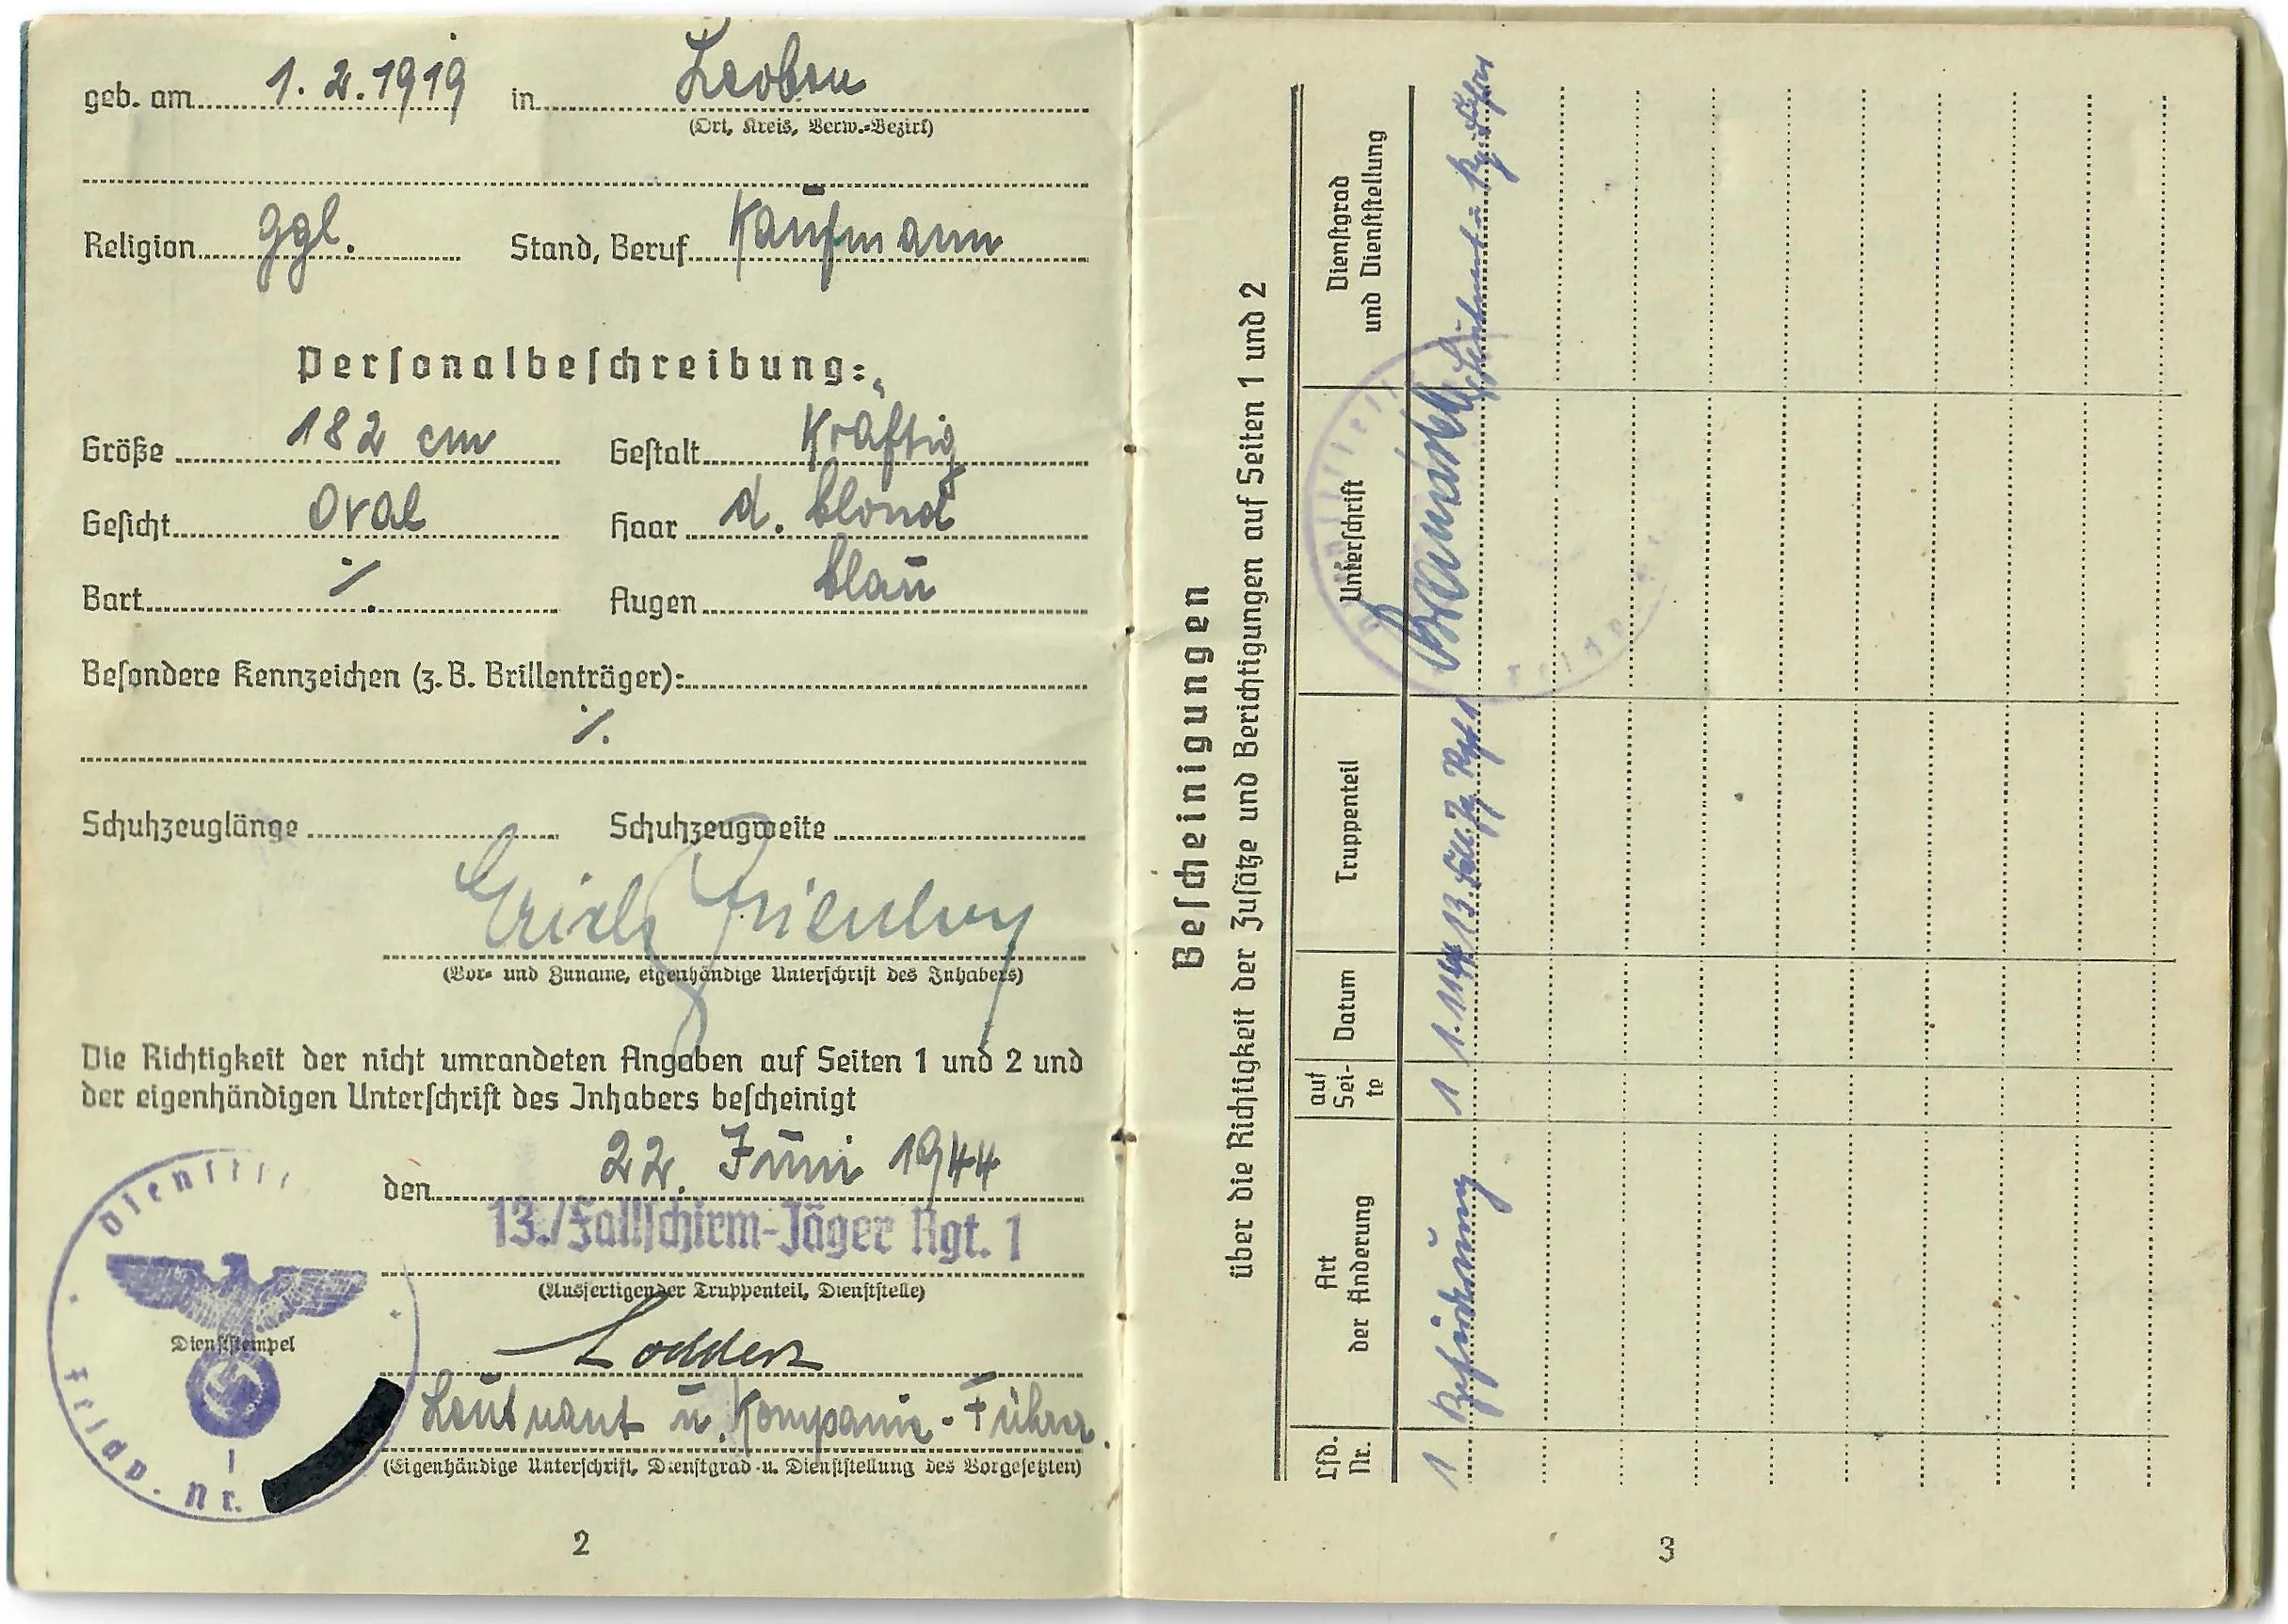 geb. am 1. 2. 1919 in Leoben
(Ort, Kreis, Verw.-Bezirk)
Religion ggl. Stand, Beruf Kaufmann
Personalbeschreibung:
Größe 182 cm Gestalt Kräftig
Gesicht oval Haar d. blond
Bart ∕. Augen blau
Besondere Kennzeichen (z. B. Brillenträger):
∕.
Schuhzeuglänge Schuhzeugweite
Erich
(Vor- und Zuname, eigenhändige Unterschrift des Inhabers)
Die Richtigkeit der nicht umrandeten Angaben auf Seiten 1 und 2 und
der eigenhändigen Unterschrift des Inhabers bescheinigt
den 22. Juni 1944
13./Fallschirm-Jäger Rgt. 1
(Ausfertigender Truppenteil, Dienststelle)
Lodders
Leutnant u. Kompanie-Führer.
(Eigenhändige Unterschrift, Dienstgrad u. Dienststellung des Vorgesetzten)
Dienststempel
Feldp. Nr.
2
Bescheinigungen
über die Richtigkeit der Zusätze und Berichtigungen auf Seiten 1 und 2
Lfd. Nr. Art der Änderung auf Sei-te Datum Truppenteil Unterschrift Dienstgrad und Dienststellung
1 Beförderung 1 1.11.44 13. Fall. Jg. Rgt 1 Leutnant u.
3